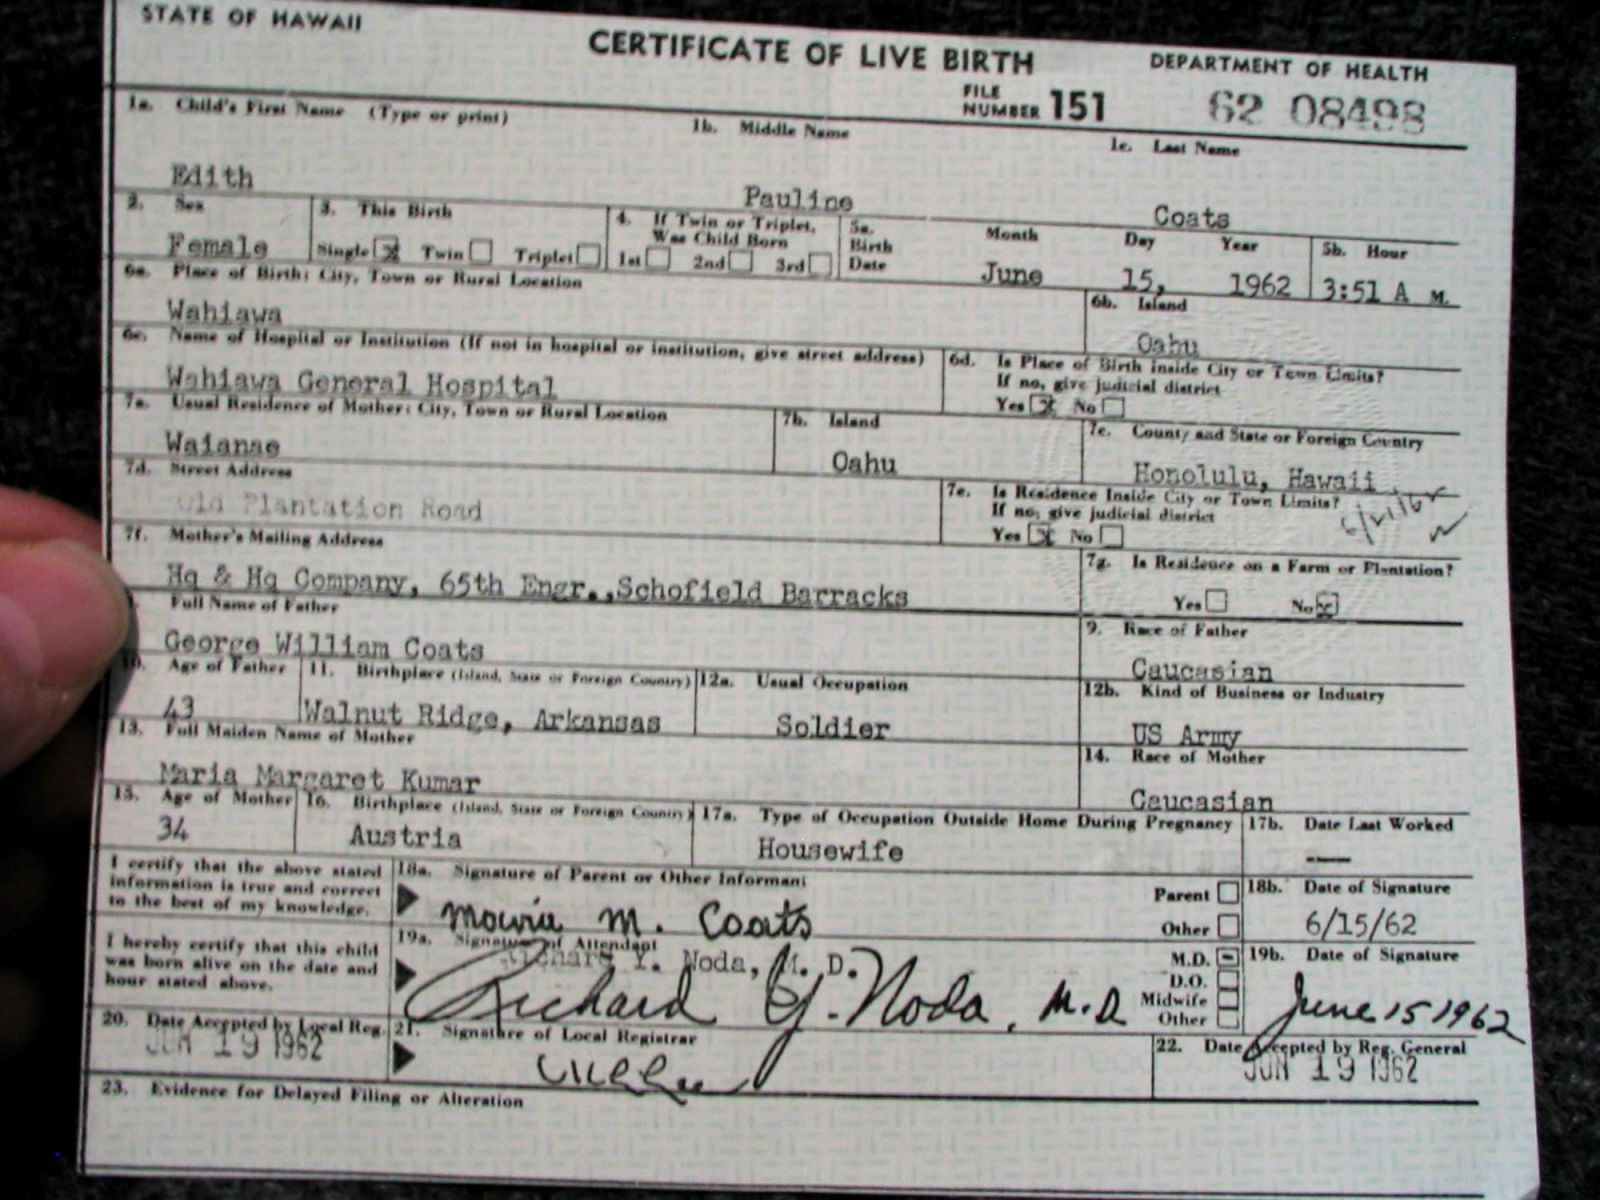 STATE OF HAWAII
CERTIFICATE OF LIVE BIRTH
DEPARTMENT OF HEALTH
FILE NUMBER 151 62 08498
1a. Child's First Name (Type or print) 1b. Middle Name 1c. Last Name
Edith Pauline Coats
2. Sex 3. This Birth 4. If Twin or Triplet, Was Child Born 5a. Birth Date Month Day Year 5b. Hour
Female Single Twin Triplet 1st 2nd 3rd June 15, 1962 3:51 A M.
6a. Place of Birth: City, Town or Rural Location 6b. Island
Wahiawa Oahu
6c. Name of Hospital or Institution (If not in hospital or institution, give street address) 6d. Is Place of Birth Inside City or Town Limits? If no, give judicial district
Wahiawa General Hospital Yes No
7a. Usual Residence of Mother: City, Town or Rural Location 7b. Island 7c. County and State or Foreign Country
Waianae Oahu Honolulu, Hawaii
7d. Street Address 7e. Is Residence Inside City or Town Limits? If no, give judicial district
Old Plantation Road Yes No
7f. Mother's Mailing Address 7g. Is Residence on a Farm or Plantation?
Hq & Hq Company, 65th Engr., Schofield Barracks Yes No
Full Name of Father 9. Race of Father
George William Coats Caucasian
10. Age of Father 11. Birthplace (Island, State or Foreign Country) 12a. Usual Occupation 12b. Kind of Business or Industry
43 Walnut Ridge, Arkansas Soldier US Army
13. Full Maiden Name of Mother 14. Race of Mother
Maria Margaret Kumar Caucasian
15. Age of Mother 16. Birthplace (Island, State or Foreign Country) 17a. Type of Occupation Outside Home During Pregnancy 17b. Date Last Worked
34 Austria Housewife —
I certify that the above stated information is true and correct to the best of my knowledge.
18a. Signature of Parent or Other Informant Parent Other 18b. Date of Signature
Maria M. Coats 6/15/62
I hereby certify that this child was born alive on the date and hour stated above.
19a. Signature of Attendant M.D. D.O. Midwife Other 19b. Date of Signature
Richard Y. Noda, M. D.
Richard Y. Noda, M.D June 15 1962
20. Date Accepted by Local Reg. 21. Signature of Local Registrar 22. Date Accepted by Reg. General
JUN 19 1962 JUN 19 1962
23. Evidence for Delayed Filing or Alteration